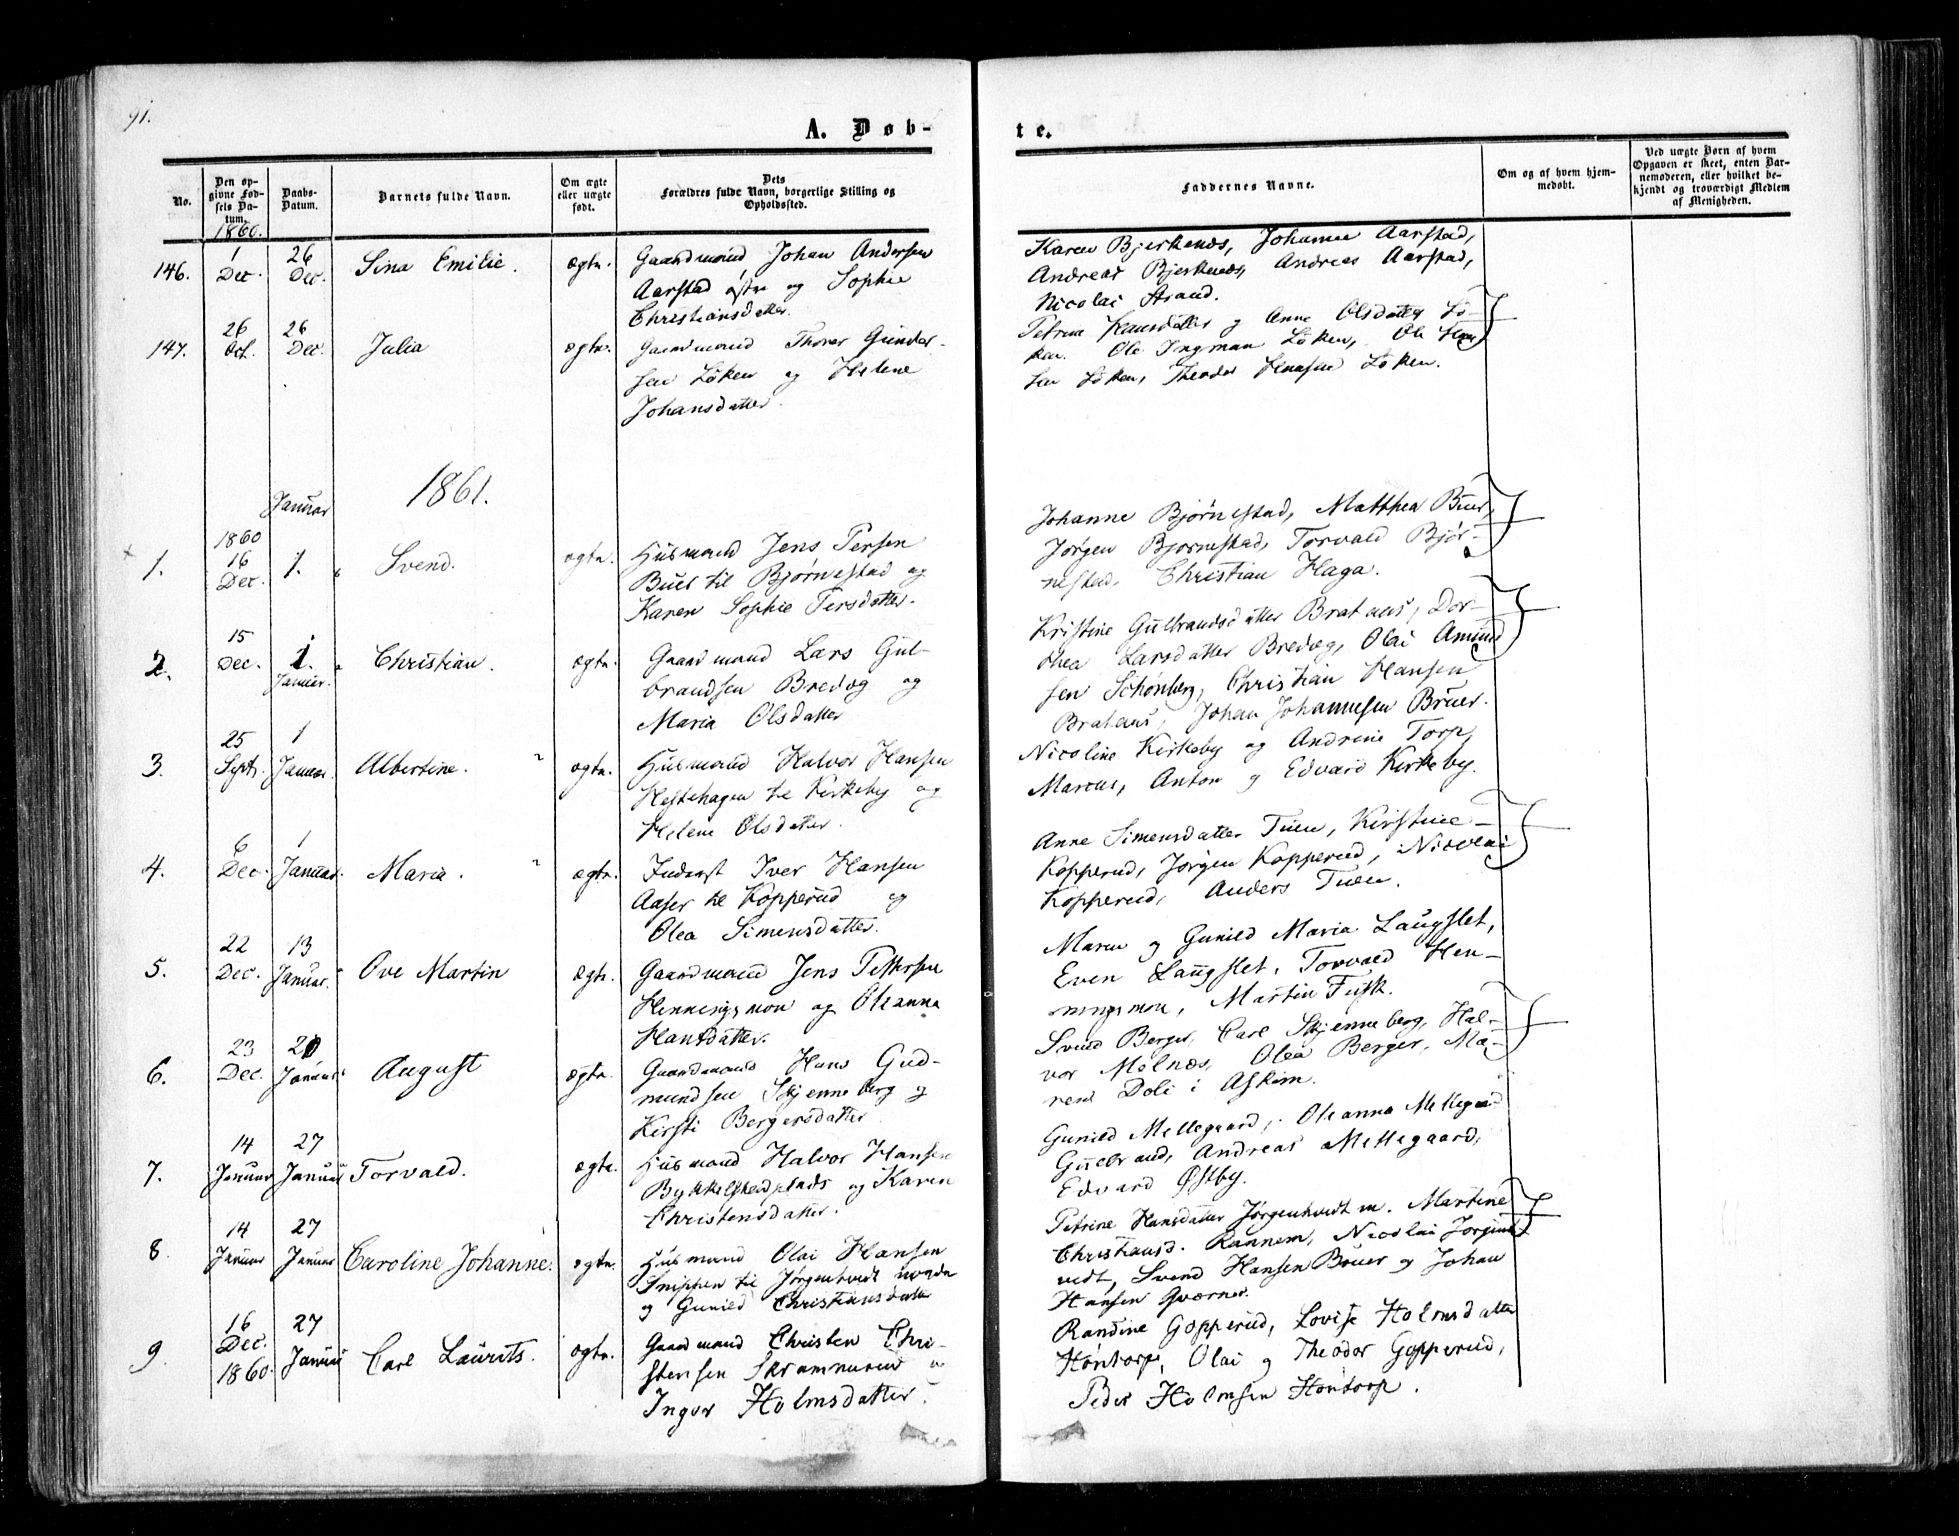 91.
A. Døb-
te.
No.
Den op-
givne Fød-
sels Da-
tum.
Daabs-
Datum.
Barnets fulde Navn.
Om ægte
eller uægte
født.
Dets
Forældres fulde Navn, borgerlige Stilling og
Opholdssted.
Faddernes Navne.
Om og af hvem hjem-
medøbt.
Ved uægte Børn af hvem
Opgaven er skeet, enten Bar-
nemoderen, eller hvilket be-
kjendt og troværdigt Medlem
af Menigheden.
1860.
146.
1
Dec.
26
Dec.
Sina Emilie.
ægte.
Gaardmand Johan Andersen
Aarstad østre og Sophie
Christiansdatter.
Karen Bjerkenæs, Johanne Aarstad,
Andreas Bjerkenæs, Andreas Aarstad,
Nicolai Strand.
147.
26
Oct.
26
Dec.
Julia
ægte.
Gaardmand Thorer Gunder-
sen Løken og Helene
Johansdatter.
Petrine Hansdatter og Anne Olsdatter Lø-
ken. Ole Ingman Løken, Ole Han
sen Løken, Theodor Hansen Løken.
1861.
Januar
1.
1860
16
Dec.
1.
Svend.
ægte.
Husmand Jens Persen
Buer til Bjørnestad og
Karen Sophie Persdatter.
Johanne Bjørnestad, Matthea Buer,
Jørgen Bjørnestad, Torvald Bjør-
nestad, Christian Haga.
2.
15
Dec.
1.
Januar.
Christian.
ægte.
Gaardmand Lars Gul-
brandsen Bredog og
Maria Olsdatter
Kristine Gulbrandsdatter Brataas, Dor-
thea Larsdatter Bredog, Olai Amund
sen Schønberg, Christian Hansen
Brataas, Johan Johannesen Bruer.
3.
25
Sept.
1
Januar.
Albertine.
ægte.
Husmand Halvor Hansen
Hestehagen til Kirkeby og
Helene Olsdatter.
Nicoline Kirkeby og Andrine Torp,
Marcus, Anton og Edvard Kirkeby.
4.
6
Dec.
1
Januar.
Maria.
ægte.
Inderst Iver Hansen
Aaser til Kopperud og
Olea Simensdatter.
Anne Simensdatter Tuen, Kirstine
Kopperud, Jørgen Kopperud, Nicolai
Kopperud, Anders Tuen.
5.
22
Dec.
13
Januar.
Ove Martin
ægte.
Gaardmand Jens Pettersen
Henningsmon og Oleanna
Hansdatter.
Maren og Gunild Maria Laugslet,
Even Laugslet, Torvald Hen-
ningsmon, Martin Fusk.
6.
23
Dec.
20
Januar
August
ægte.
Gaardmand Hans Gud-
mundsen Skjenneberg og
Kirsti Bergersdatter
Svend Berger, Carl Skjenneberg, Hal-
vor Molnæs, Olea Berger, Ma-
ren Doli i Askim.
7.
14
Januar
27
Januar
Torvald.
ægte.
Husmand Halvor Hansen
og Karen
Christensdatter.
Gunild Mellegaard, Oleanna Mellegaard
Gulbrand, Andreas Mellegaard,
Edvard Østby.
8.
14
Januar
27
Januar
Caroline Johanne.
ægte.
Husmand Olai Hansen
Snippen til Jørgentvedt nordre
og Gunild Christiansdatter
Petrine Hansdatter Jørgentvedt m. Martine
Christiansd. Rannem, Nicolai Jørgent
vedt, Svend Hansen Bruer og Johan
Hansen Qværner.
9.
16
Dec.
1860.
27
Januar
Carl Laurits.
ægte.
Gaardmand Christen Chri-
stensen Skrammerud og
Inger Holmsdatter.
Randine Gopperud, Lovise Holmsdatter
Hontorp, Olai og Theodor Gopperud,
Peder Holmsen Hontorp.